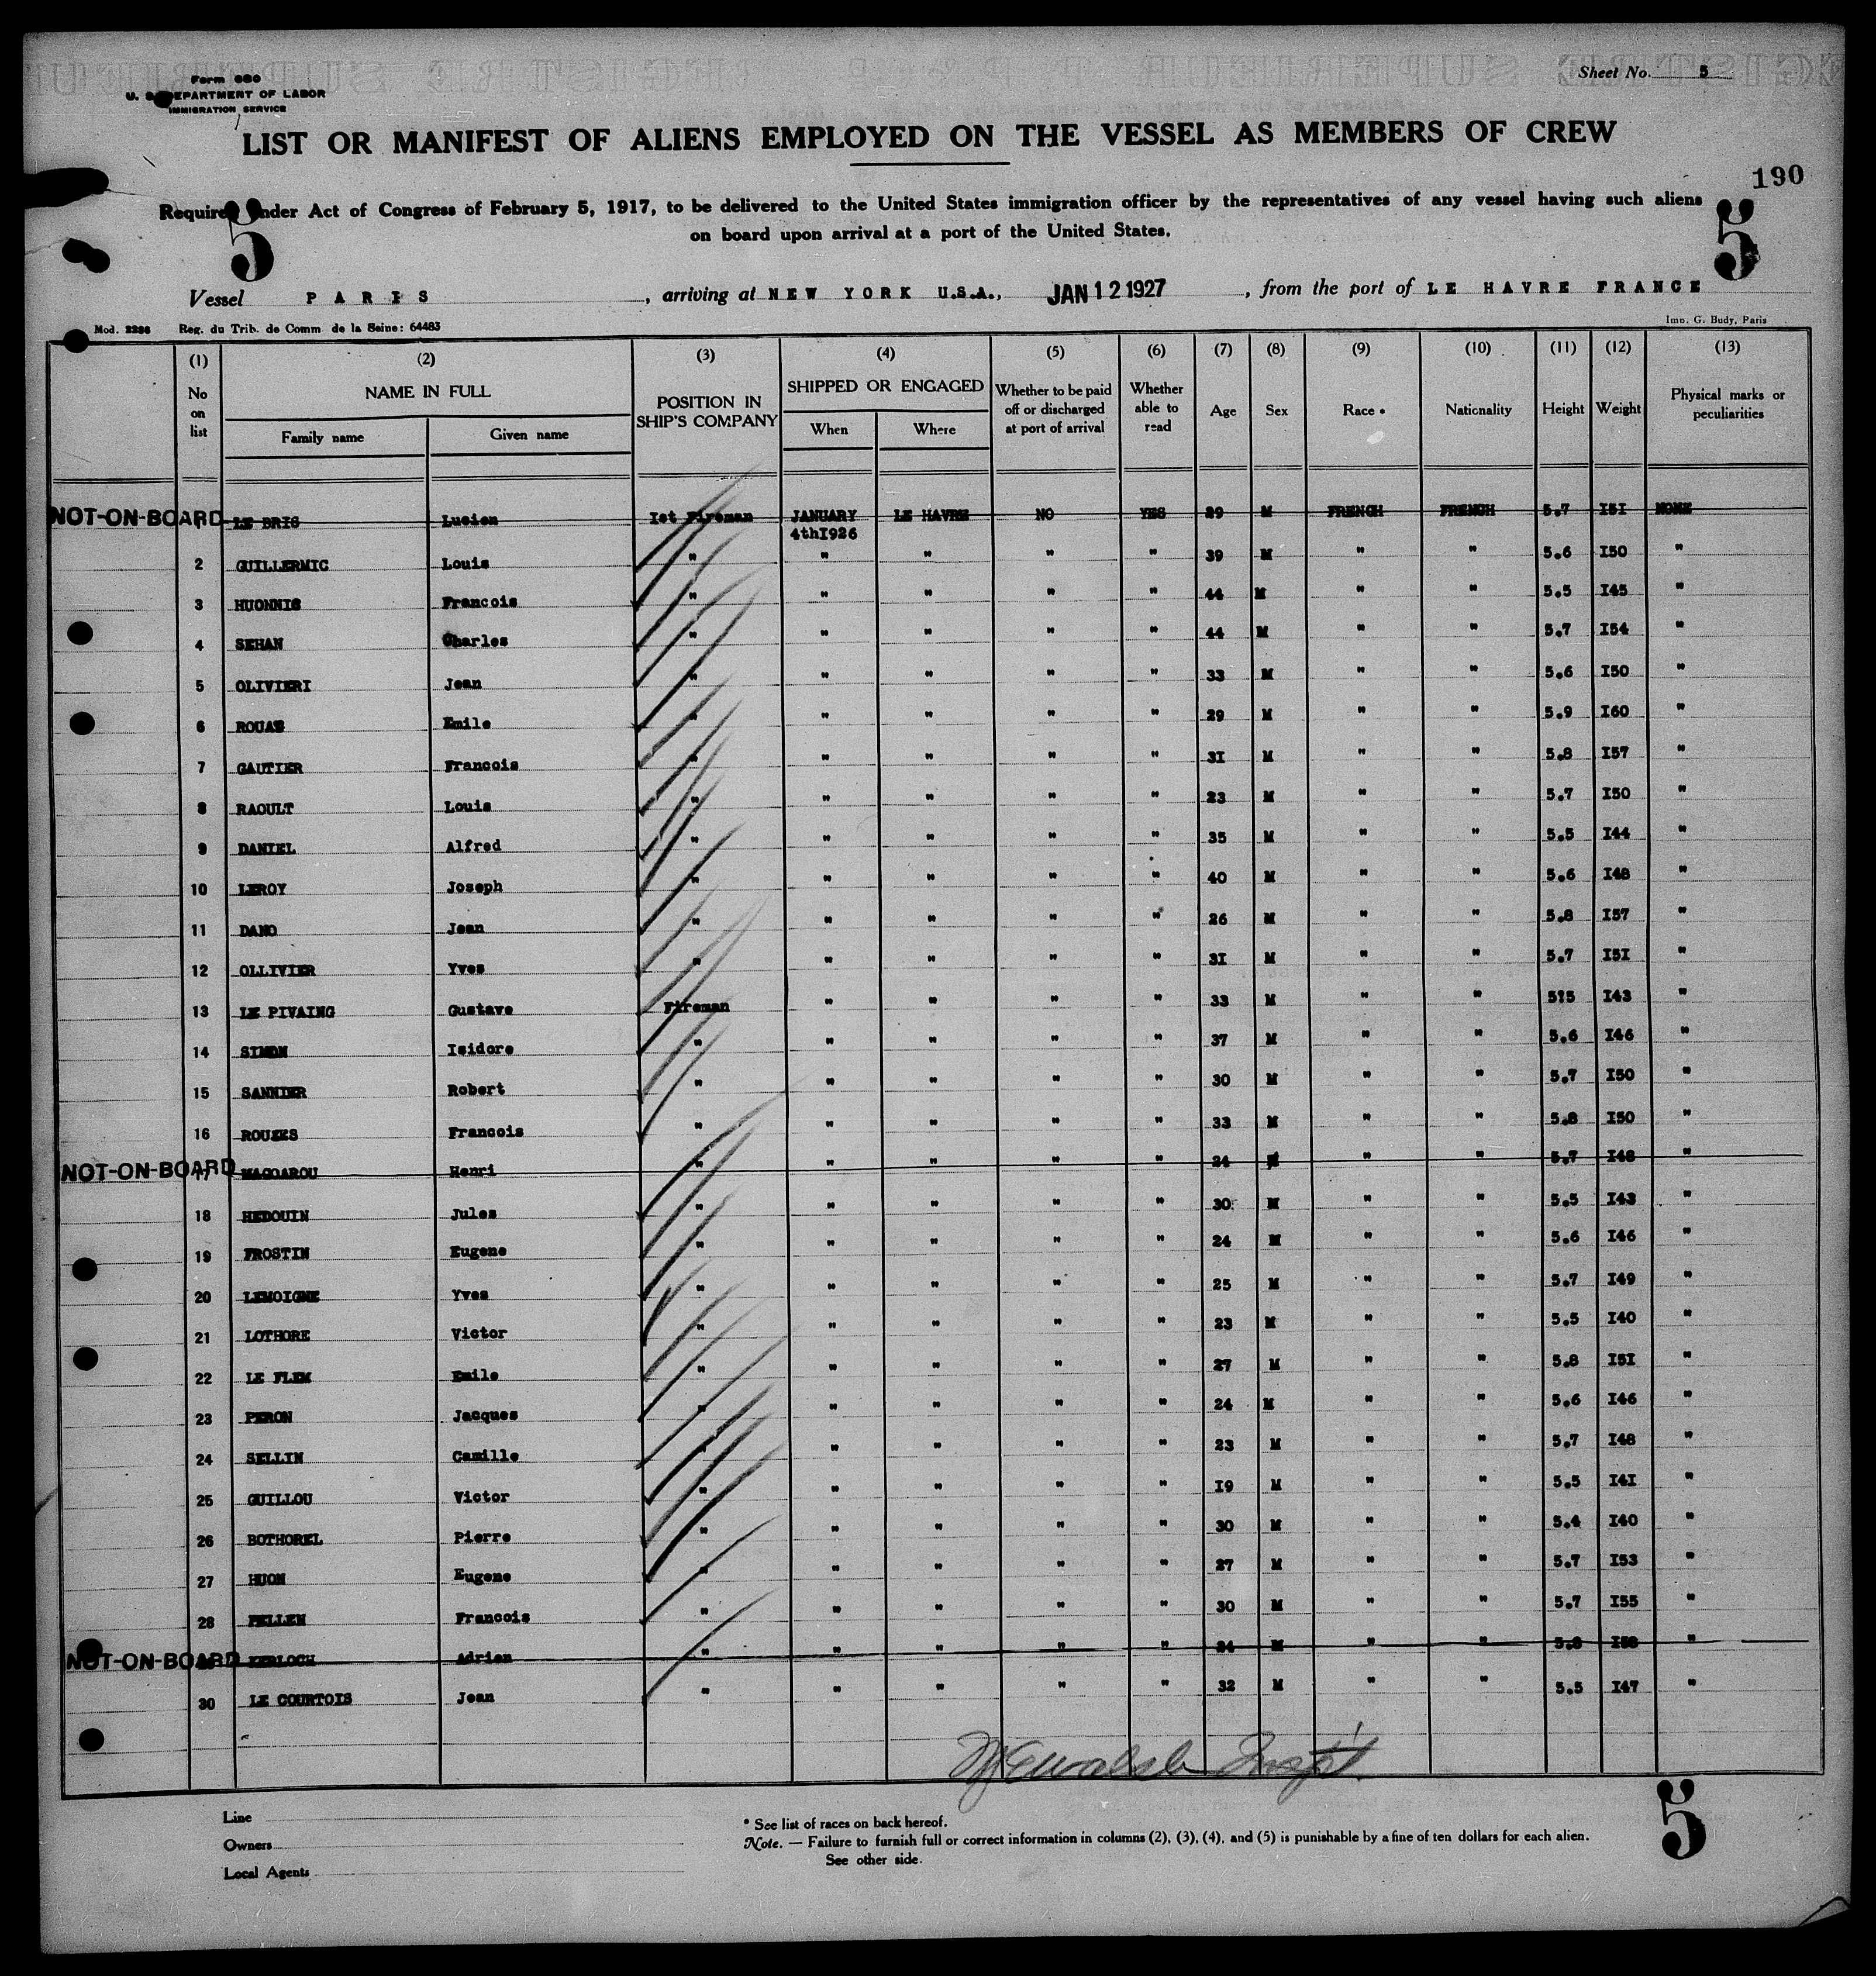 Sheet No. 5
U. S. DEPARTMENT OF LABOR
IMMIGRATION SERVICE
LIST OR MANIFEST OF ALIENS EMPLOYED ON THE VESSEL AS MEMBERS OF CREW
190
Required under Act of Congress of February 5, 1917, to be delivered to the United States immigration officer by the representatives of any vessel having such aliens
on board upon arrival at a port of the United States.
5 5
Vessel PARIS, arriving at NEW YORK U.S.A., JAN 12 1927, from the port of LE HAVRE FRANCE
Mod. 2286 Reg. du Trib. de Comm de la Seine: 64483 Imp. G. Budy, Paris
(1) (2) (3) (4) (5) (6) (7) (8) (9) (10) (11) (12) (13)
No on list NAME IN FULL Family name Given name POSITION IN SHIP'S COMPANY SHIPPED OR ENGAGED When Where Whether to be paid off or discharged at port of arrival Whether able to read Age Sex Race * Nationality Height Weight Physical marks or peculiarities
NOT-ON-BOARD 1 LE BRIS Lucien Ist Fireman JANUARY 4thI926 LE HAVRE NO YES 29 M FRENCH FRENCH 5.7 I5I NONE
2 GUILLERMIC Louis " " " " " 39 M " " 5.6 I50 "
3 HUONNIS Francois " " " " " 44 M " " 5.5 I45 "
4 SEHAN Charles " " " " " 44 M " " 5.7 I54 "
5 OLIVIERI Jean " " " " " 33 M " " 5.6 I50 "
6 ROUAS Emile " " " " " 29 M " " 5.9 I60 "
7 GAUTIER Francois " " " " " 3I M " " 5.8 I57 "
8 RAOULT Louis " " " " " 23 M " " 5.7 I50 "
9 DANIEL Alfred " " " " " 35 M " " 5.5 I44 "
10 LEROY Joseph " " " " " 40 M " " 5.6 I48 "
11 DANO Jean " " " " " 26 M " " 5.8 I57 "
12 OLLIVIER Yves " " " " " 3I M " " 5.7 I5I "
13 LE PIVAING Gustave Fireman " " " " 33 M " " 5?5 I43 "
14 SIMON Isidore " " " " " 37 M " " 5.6 I46 "
15 SANNIER Robert " " " " " 30 M " " 5.7 I50 "
16 ROUZES Francois " " " " " 33 M " " 5.8 I50 "
NOT-ON-BOARD 17 MAGOAROU Henri " " " " " 24 M " " 5.7 I48 "
18 HEDOUIN Jules " " " " " 30 M " " 5.5 I43 "
19 FROSTIN Eugene " " " " " 24 M " " 5.6 I46 "
20 LEMOIGNE Yves " " " " " 25 M " " 5.7 I49 "
21 LOTHORE Victor " " " " " 23 M " " 5.5 I40 "
22 LE FLEM Emile " " " " " 27 M " " 5.8 I5I "
23 PERON Jacques " " " " " 24 M " " 5.6 I46 "
24 SELLIN Camille " " " " " 23 M " " 5.7 I48 "
25 GUILLOU Victor " " " " " I9 M " " 5.5 I4I "
26 BOTHOREL Pierre " " " " " 30 M " " 5.4 I40 "
27 HUON Eugene " " " " " 27 M " " 5.7 I53 "
28 PELLEN Francois " " " " " 30 M " " 5.7 I55 "
NOT-ON-BOARD KERLOCH Adrien " " " " " 24 M " " 5.8 I58 "
30 LE COURTOIS Jean " " " " " 32 M " " 5.5 I47 "
Walsh Inspt.
Line
Owners
Local Agents
* See list of races on back hereof.
Note. — Failure to furnish full or correct information in columns (2), (3), (4), and (5) is punishable by a fine of ten dollars for each alien.
See other side.
5